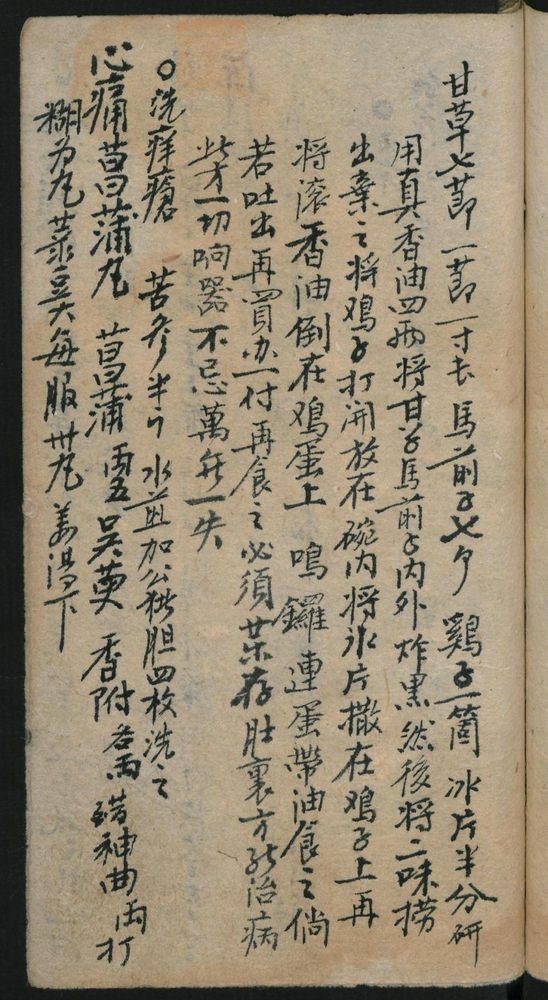 甘草七節一節一寸長馬前子七个鷄子一箇冰片半分研
用真香油四両將甘草馬前子内外炸黒然後將二味撈
出棄之將鳮子打開放在碗内將氷片撒在鳮子上再
将滚香油倒在鳮蛋上鳴鑼連蛋帶油食之倘
若吐出再買办一付再食之必須薬存肚裏方能治病
此方一切响器不忌萬無一失
○洗痒瘡 苦参半斤水煎加公猪胆四枚洗之
心痛菖蒲丸 菖蒲 吳萸 香附各両 神曲両打
糊為丸菉豆大每服卅丸姜湯下